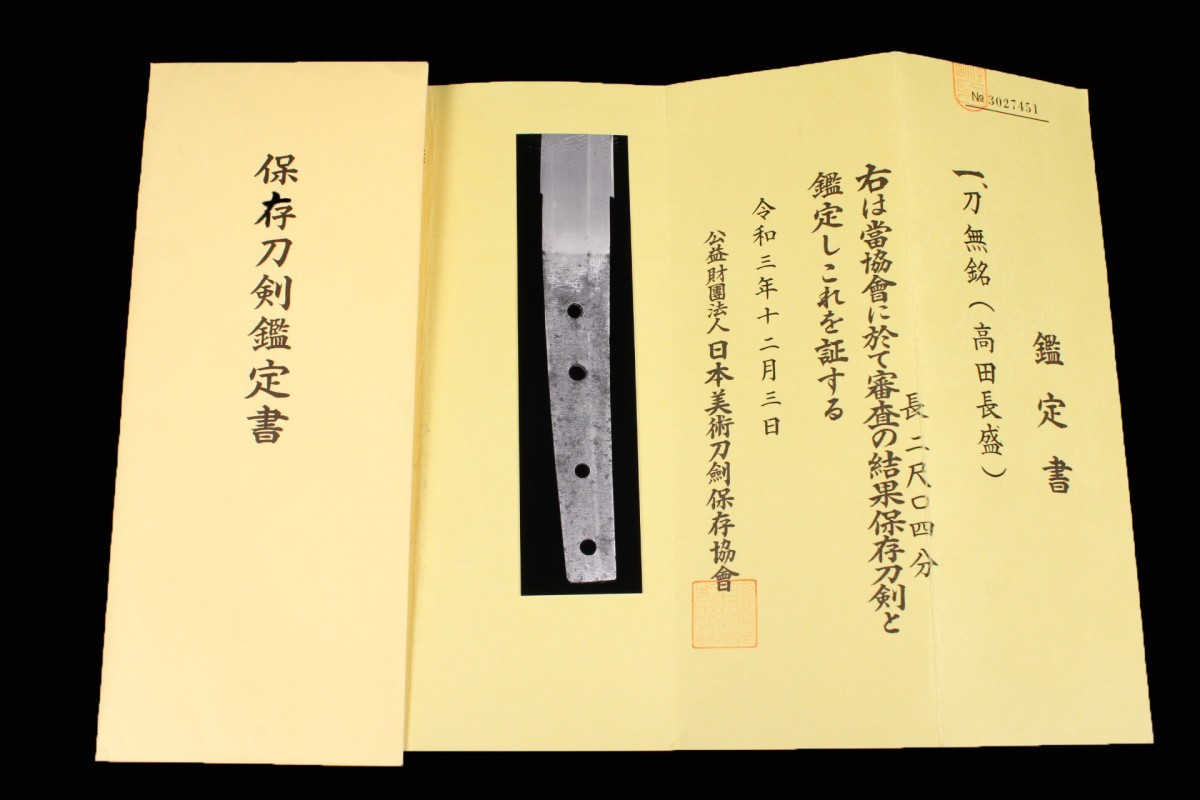 保存刀剣鑑定書
№ 3027451
鑑定書
一、刀 無銘(高田長盛)
長 二尺〇四分
右は當協會に於て審査の結果保存刀剣と
鑑定しこれを証する
令和三年十二月三日
公益財團法人 日本美術刀劍保存協會